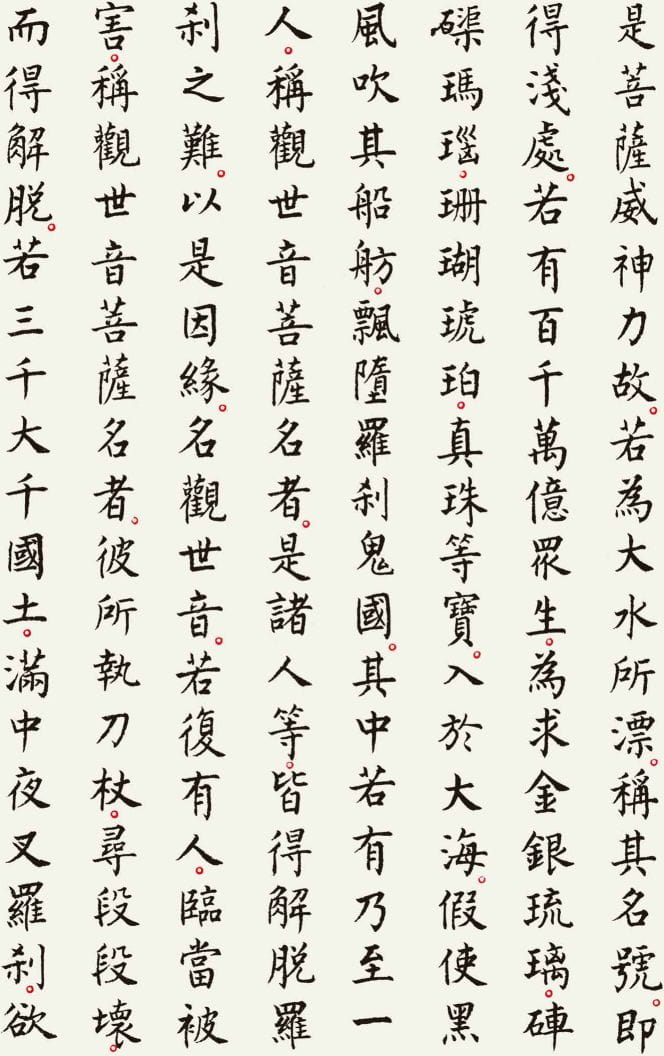 是菩薩威神力故。若為大水所漂。稱其名號。即
得淺處。若有百千萬億眾生。為求金銀琉璃。硨
磲瑪瑙。珊瑚琥珀。真珠等寶。入於大海。假使黑
風吹其船舫。飄墮羅剎鬼國。其中若有乃至一
人。稱觀世音菩薩名者。是諸人等。皆得解脫羅
剎之難。以是因緣。名觀世音。若復有人。臨當被
害。稱觀世音菩薩名者。彼所執刀杖。尋段段壞。
而得解脫。若三千大千國土。滿中夜叉羅剎。欲